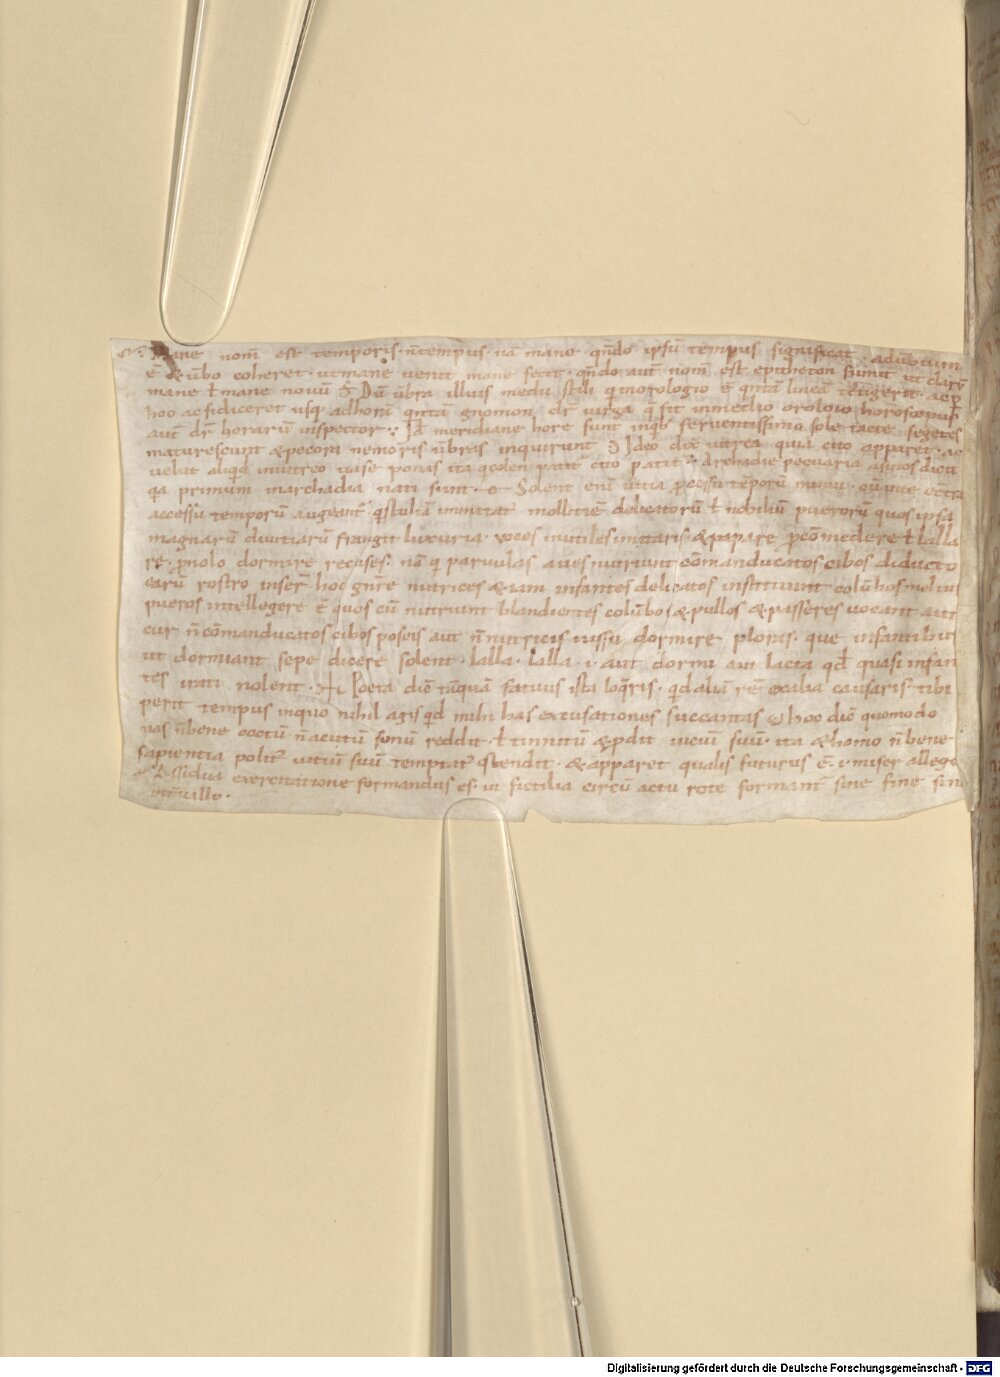 Mane nom̄ est temporis. n̄ tempus. nā mane. qn̄do ipsū tempus significat. aduerbium
ē & ūbo coheret. ut mane uenit mane fecit. qn̄do aut̄ nom̄ est epitheton sumit ut clarū
mane ł mane nouū. Dū ūbra illius medii stili q̄ in orologio ē qntā lineā tetigerit. ac p
hoc ac si diceret usq; ad horā qntā gnomon dr̄ uirga q̄ sit in medio oroloio horoscopus
aut̄ dr̄ horarum inspector. Id̄ meridiane hore sunt in qb; feruentissimo sole tacte segetes
maturescunt & pecora nemoris ūbras inquirunt. Ideo dix̄ uitrea quia cito apparet. ac
uelut aliqd̄ in uitreo uase ponas ita qcolen patit cito patit. Archadie pecuaria asinos dicit
qa primum in archadia nati sunt. Solent enī uitia p̄cessu tēporū minui. cū
accessu temporū augeant̄. stultiā imitat̄ mollitiē delicatorū ł nobiliū puerorū quos ipsa
magnarū diuitiarū frangit luxuria. uoces inutiles imitaris & papare p̄ comedere ł lalla
re. p̄ nolo dormire recuses. nā q̄ paruulas aues nutriunt cōmanducatos cibos diducto
earū rostro inser̄. hoc gn̄re nutrices & iam infantes delicatos instituunt colūbos melius
pueros intellegere ē quos cū nutriunt blandientes colūbos & pullos & passeres uocant aut
cur n̄ cōmanducatos cibos poscis aut n̄ nutricis iussu dormire ploras. que infantibus
ut dormiant sepe dicere solent. lalla. lalla. i. aut dormi aut lacta qd̄ quasi infan
tes irati nolent. Poeta diē tāquā fatuus ista loqris. qd aliā rē ex alia causaris tibi
perit tempus in quo nihil agis qd mihi has excusationes succantas. hoc diē quomodo
uas n̄ bene coctū n̄ acutū sonū reddit. ł tinnitū & pdit uiciū suū. ita & homo n̄ bene
sapientia polit̄ uitiū suū temptat̄ ostendit. & apparet qualis futurus ē. i. miser allege
Assidua exercitatione formandus es. ut fictilia circū actu rote formant̄ sine fine sin
interuallo.
Digitalisierung gefördert durch die Deutsche Forschungsgemeinschaft - DFG